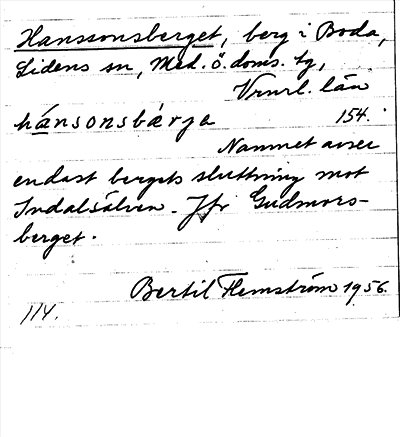 Hanssonsberget, berg i Boda,
Lidens sn, Med. ö. doms. tg,
Vrnrl. län
hánsonsbárja 154.
Namnet avser
endast bergets sluttning mot
Indalsälven. Jfr Gudmors-
berget.
Bertil Flemström 1956.
114.